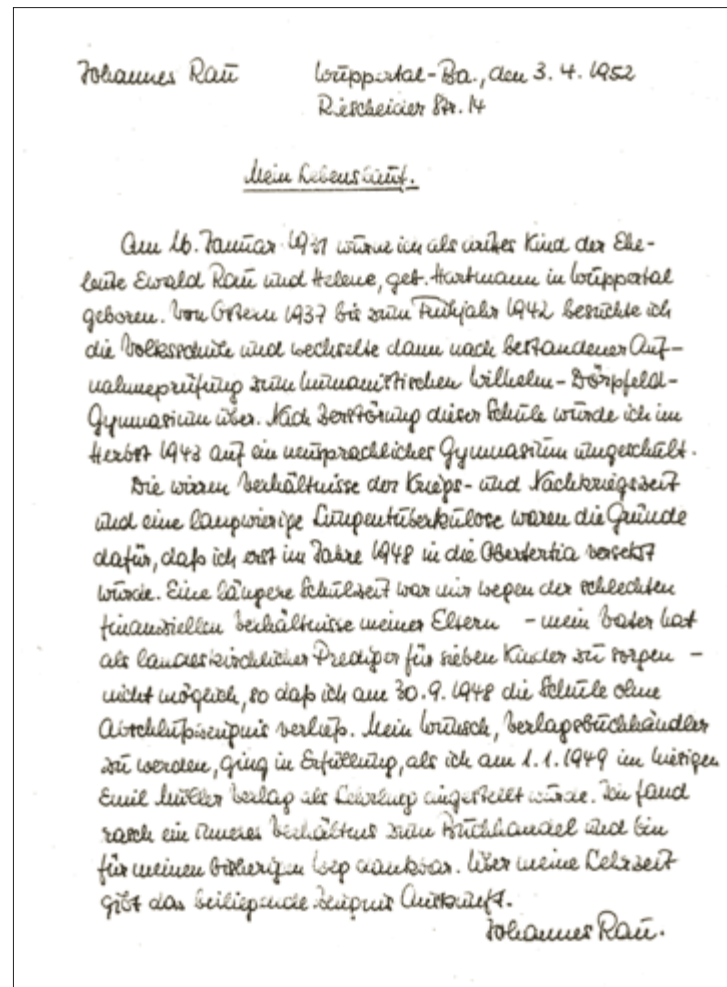 Johannes Rau Wuppertal-Ba., den 3. 4. 1952
Riescheider Str. 14
Mein Lebenslauf.
Am 16. Januar 1931 wurde ich als drittes Kind der Ehe-
leute Ewald Rau und Helene, geb. Hartmann in Wuppertal
geboren. Von Ostern 1937 bis zum Frühjahr 1942 besuchte ich
die Volksschule und wechselte dann nach bestandener Auf-
nahmeprüfung zum humanistischen Wilhelm-Dörpfeld-
Gymnasium über. Nach Zerstörung dieser Schule wurde ich im
Herbst 1943 auf ein neusprachliches Gymnasium umgeschult.
Die wirren Verhältnisse der Kriegs- und Nachkriegszeit
und eine langwierige Lungentuberkulose waren die Gründe
dafür, daß ich erst im Jahre 1948 in die Obertertia versetzt
wurde. Eine längere Schulzeit war mir wegen der schlechten
finanziellen Verhältnisse meiner Eltern - mein Vater hat
als landeskirchlicher Prediger für sieben Kinder zu sorgen -
nicht möglich, so daß ich am 30. 9. 1948 die Schule ohne
Abschlußzeugnis verließ. Mein Wunsch, Verlagsbuchhändler
zu werden, ging in Erfüllung, als ich am 1. 1. 1949 im hiesigen
Emil Müller Verlag als Lehrling eingestellt wurde. Ich fand
rasch ein inneres Verhältnis zum Buchhandel und bin
für meinen bisherigen Weg dankbar. Über meine Lehrzeit
gibt das beiliegende Zeugnis Auskunft.
Johannes Rau.